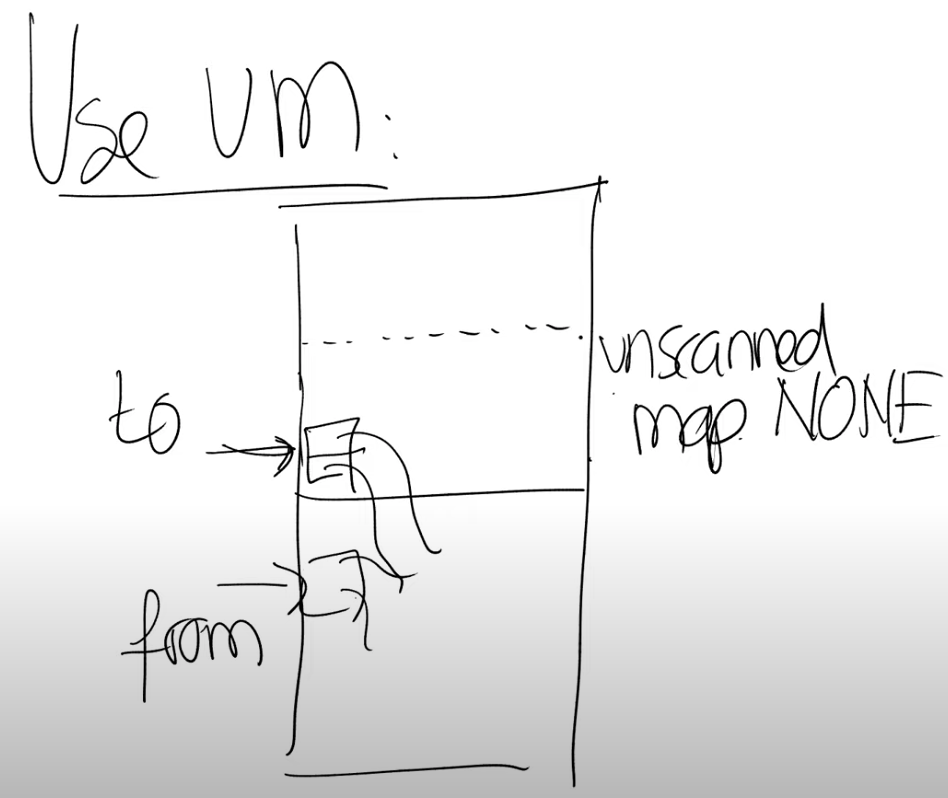 Use VM:
unscanned
map NONE
to
from